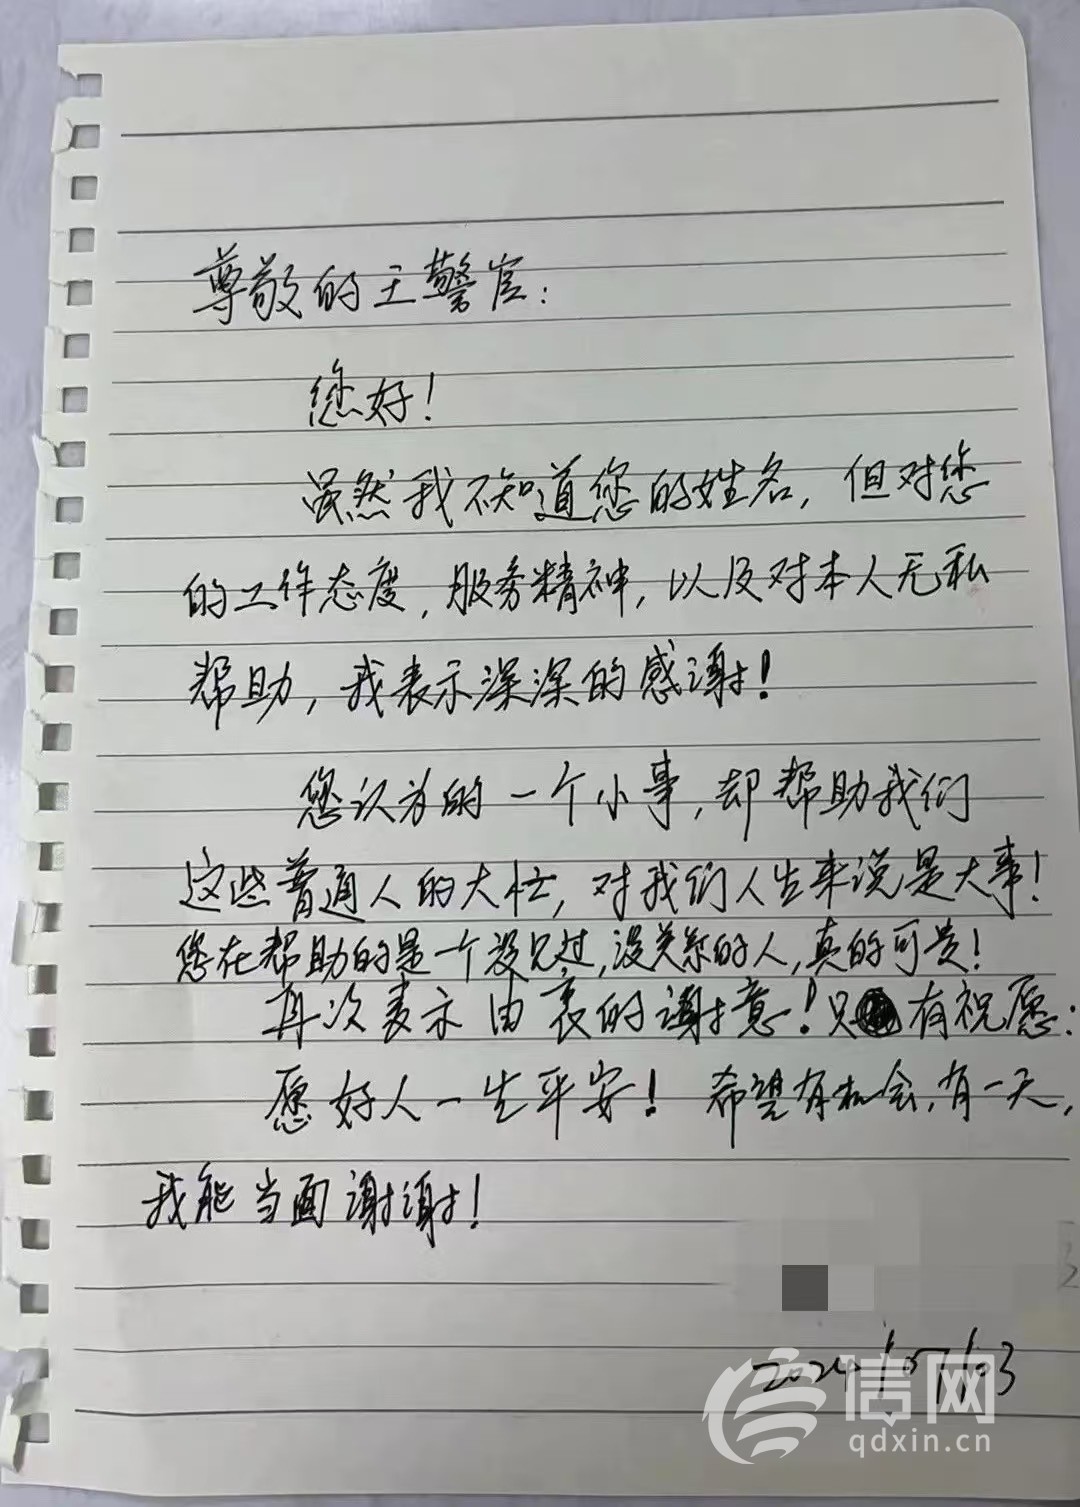 尊敬的王警官：
您好！
虽然我不知道您的姓名，但对您
的工作态度，服务精神，以及对本人无私
帮助，我表示深深的感谢！
您认为的一个小事，却帮助我们
这些普通人的大忙，对我们人生来说是大事！
您在帮助的是一个没见过，没关系的人，真的可贵！
再次表示由衷的谢意！只有祝愿：
愿好人一生平安！希望有机会，有一天，
我能当面谢谢！
2024/07/03
信网
qdxin.cn